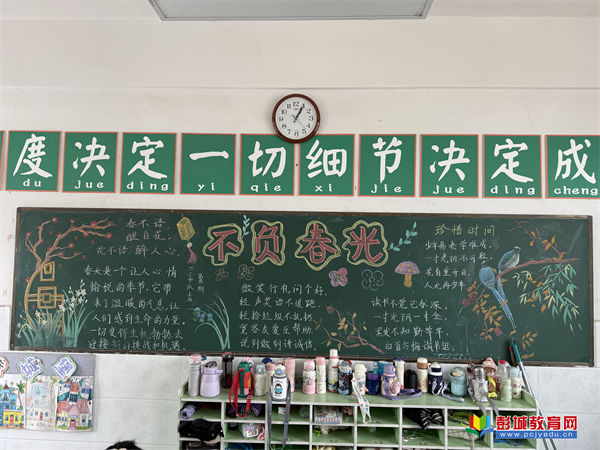 度决定一切细节决定成
du jue ding yi qie xi jie jue ding cheng
不负春光
春不语
醒百花
花不语,醉人心
春天是一个让人心情
愉悦的季节,它带
来了温暖的气息,让
人们感到生命的力量。
一切变得生机勃勃
迎接新的挑战和机遇
微笑行礼问个好,
轻声笑语不追跑。
轻拾垃圾不乱扔
宽容友爱互帮助
说到做到讲诚信
珍惜时间
少年易老学难成,
一寸光阴不可轻。
花有重开日,
人无再少年。
读书不觉已春深,
一寸光阴一寸金。
黑发不知勤学早,
白首方悔读书迟。
彭城教育网
www.pcjyedu.cn